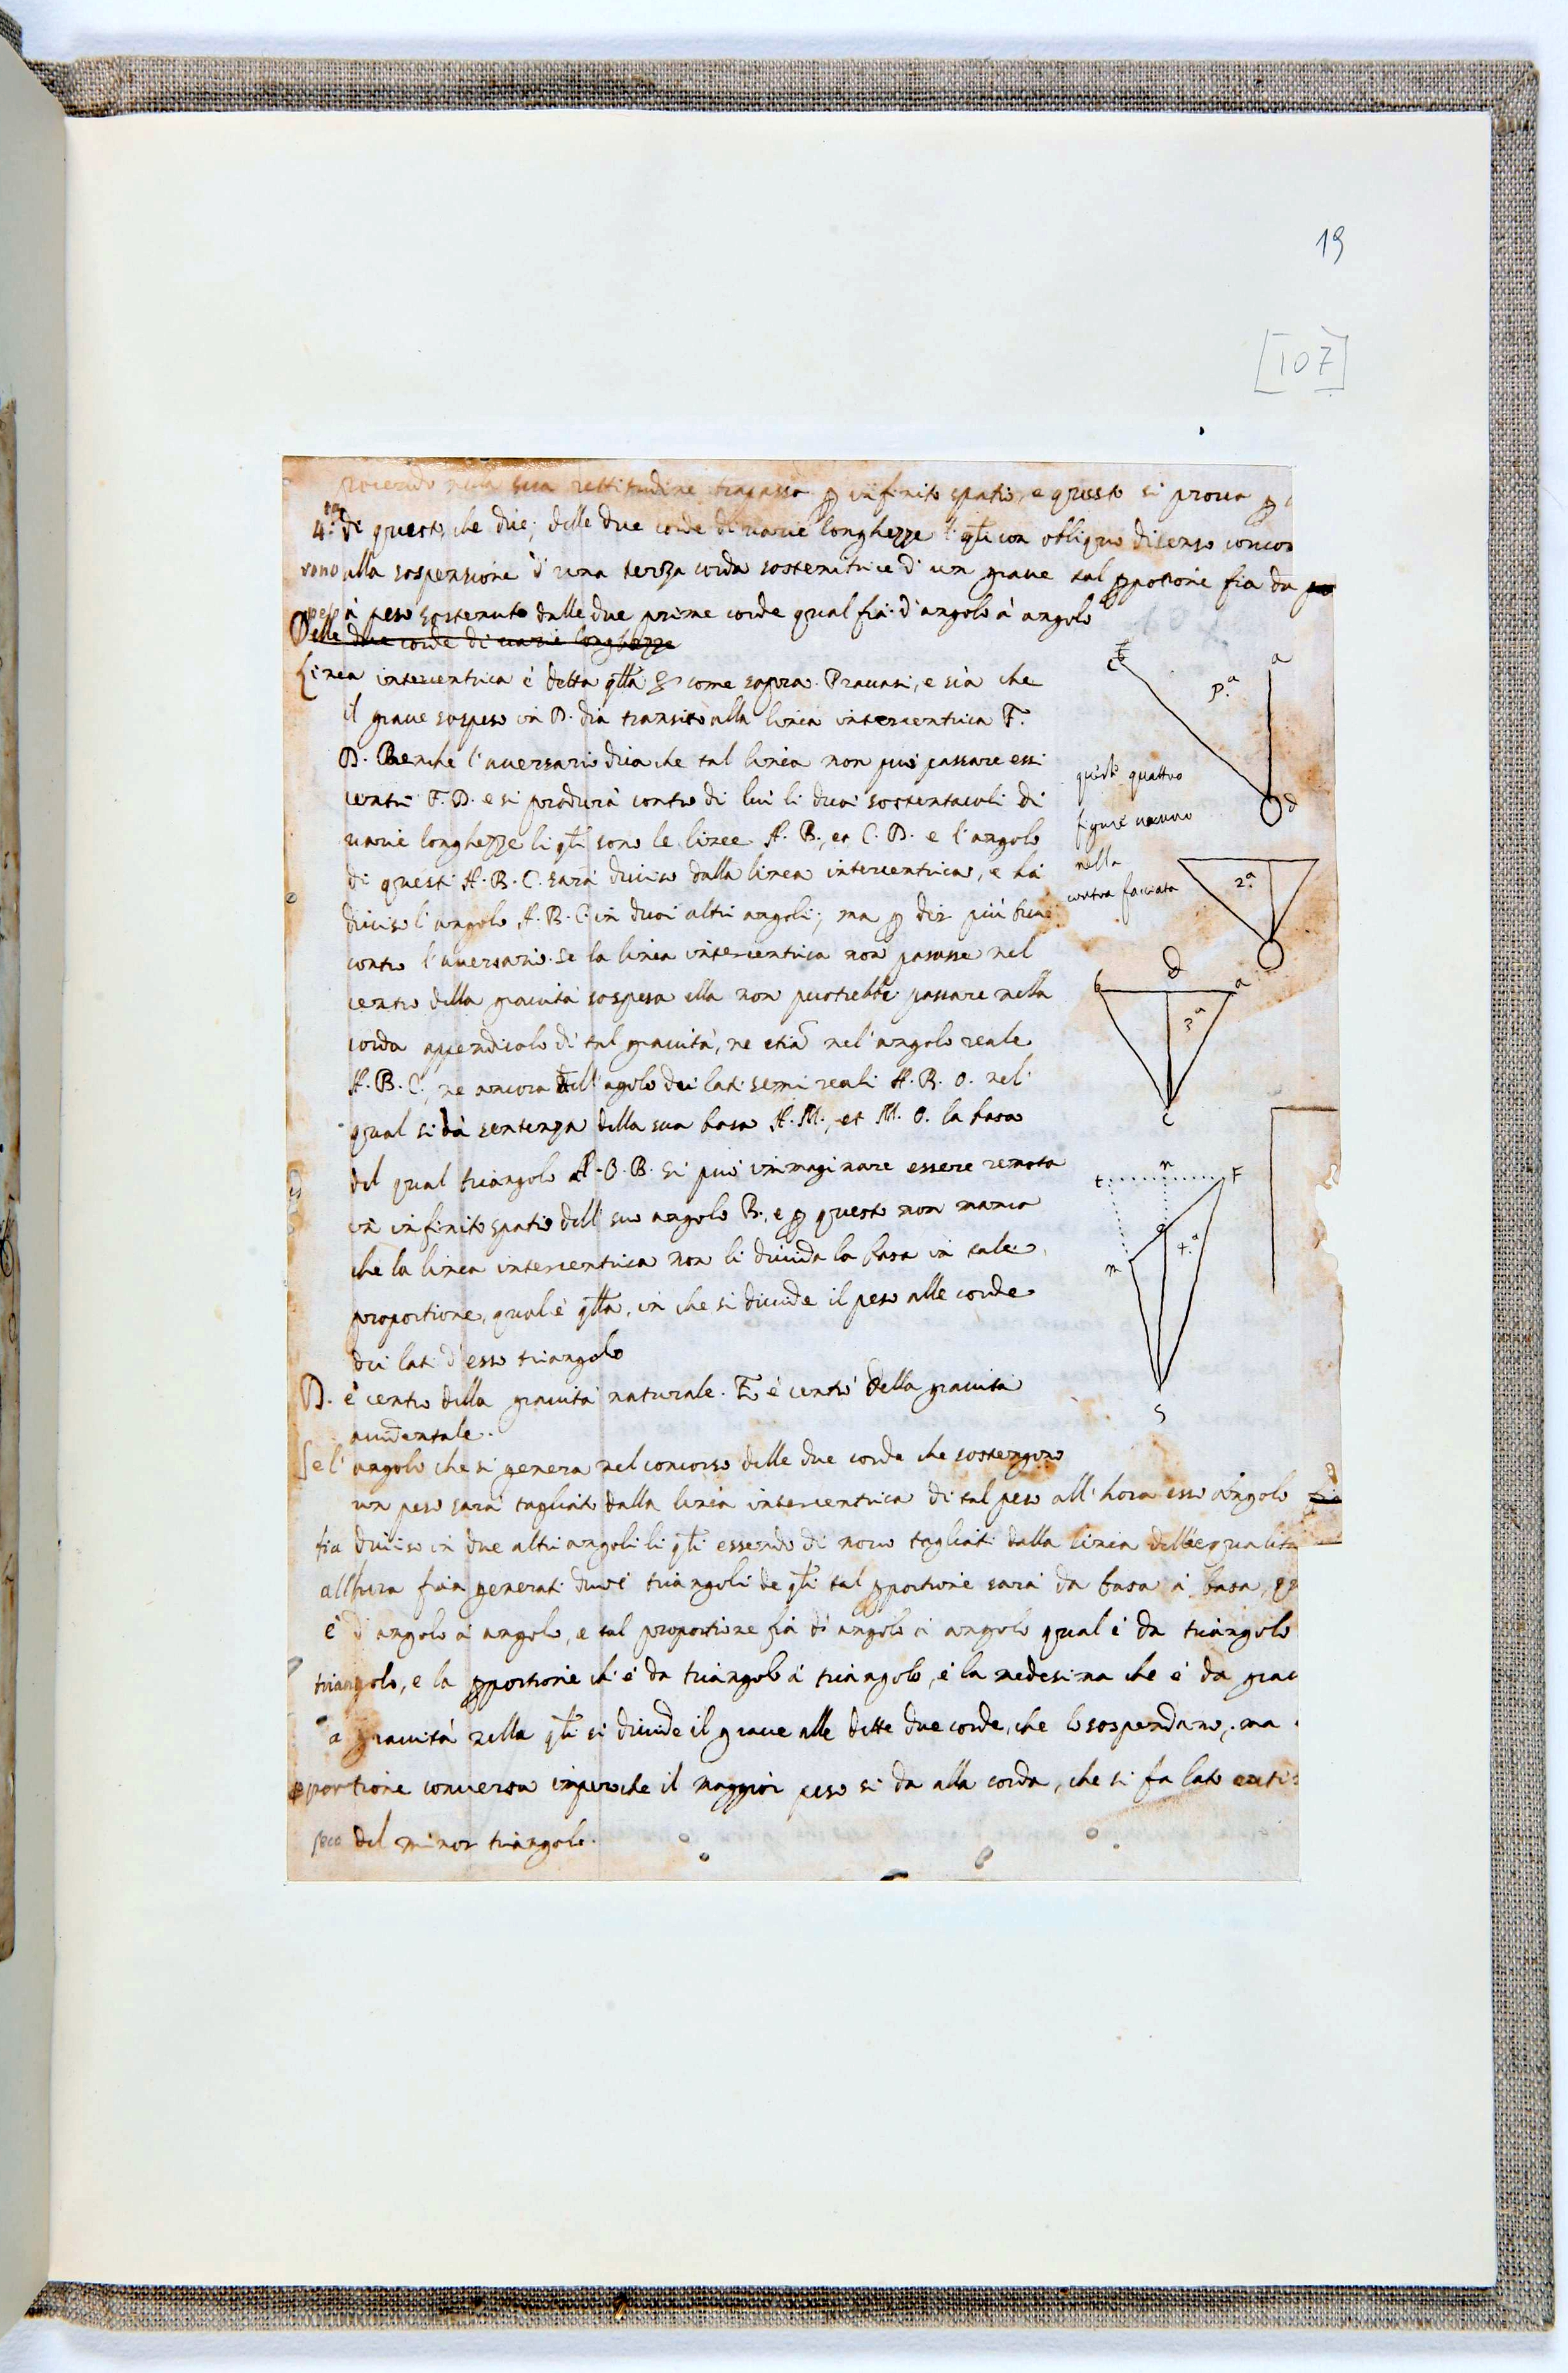 19
[107]
sua rettitudine trapassa p infinito spatio, e questo si proua p
4.ta di questo, che dice; delle due corde di uarie longhezze l' qli con obliquo disenso concor
rono alla sospensione d' una terza corda sostenitrice d' un graue tal pportione fia da
peso à peso sostenuto dalle due prime corde qual fia d'angolo à angolo
Delle due corde di uarie longhezze
Linea intercentrica è detta qlla come sopra. Prouasi, e sià che
il graue sospeso in B. dia transito alla linia intercentrica F.
B. Benche l'auersario dica che tal linea non può passare essi
centri F. B. e si produrà contro di lui li duoi sostentaculi di
uarie longhezze li qli sono le linee A. B., et C. B. e l'angolo
di questi A. B. C. sarà diuiso dalla linea intercentrica, e hà
diuiso l'angolo A. B. C. in duoi altri angoli; ma p dir più
contro l'auersario. se la linea intercentrica non passasse nel
centro della grauità sospesa ella non puotrebbe passare nella
corda appendicolo di tal grauità, ne etiã nel'angolo reale
A. B. C., ne ancora dell'agolo dei lati semi reali A. B. O. nel
qual si dà sentenza della sua basa A. M., et M. O. la basa
del qual triangolo A. O. B. si può immaginare essere remota
in infinito spatio dell suo angolo B., e p questo non manca
che la linea intercentrica non li diuida la basa in tale
proportione, qual è qlla, in che si diuide il peso alle corde
dei lati d'esso triangolo
B. è centro della grauità naturale. F. è centro della grauità
accidentale.
Se l' angolo che si genera nel concorso delle due corde che sostengono
un peso sarà tagliato dalla linia intercentrica di tal peso all'hora esso angolo
fia diuiso in due altri angoli li qli essendo di nouo tagliati dalla linea dell'equalità
allhora fian generati duoi triangoli de qli tal pportione sarà da basa à basa,
è d'angolo à angolo, e tal proportione fia di angolo à angolo qual è da triangolo
triangolo, e la pportione ch'è da triangolo à triangolo, è la medesima che è da grau
a grauità nella qli si diuide il graue alle dette due corde, che lo sospendano, ma
pportione conuersa imperoche il maggior peso si da alla corda, che si fa lato
del minor triangolo.
a
p.a
d
queste quattro
figure uanno
nella
contra facciata
2.a
b d a
3.a
c
t n F
4.a
m
S